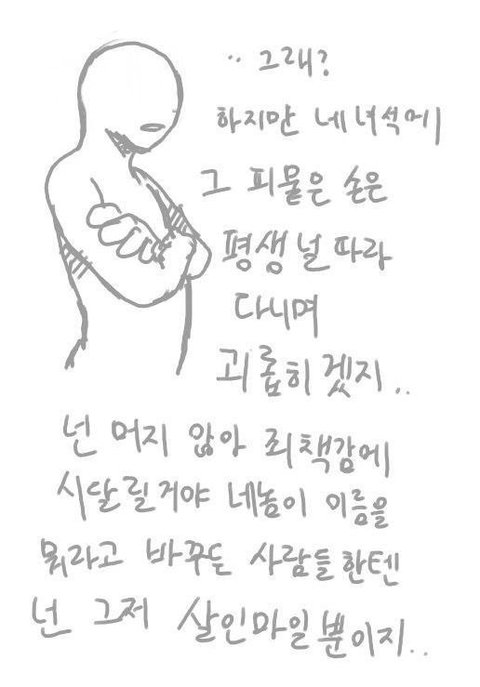 .. 그래?
하지만 네녀석에
그 피묻은 손은
평생 널 따라
다니며
괴롭히겠지..
넌 머지 않아 죄책감에
시달릴거야 네놈이 이름을
뭐라고 바꾸든 사람들한텐
넌 그저 살인마일뿐이지..